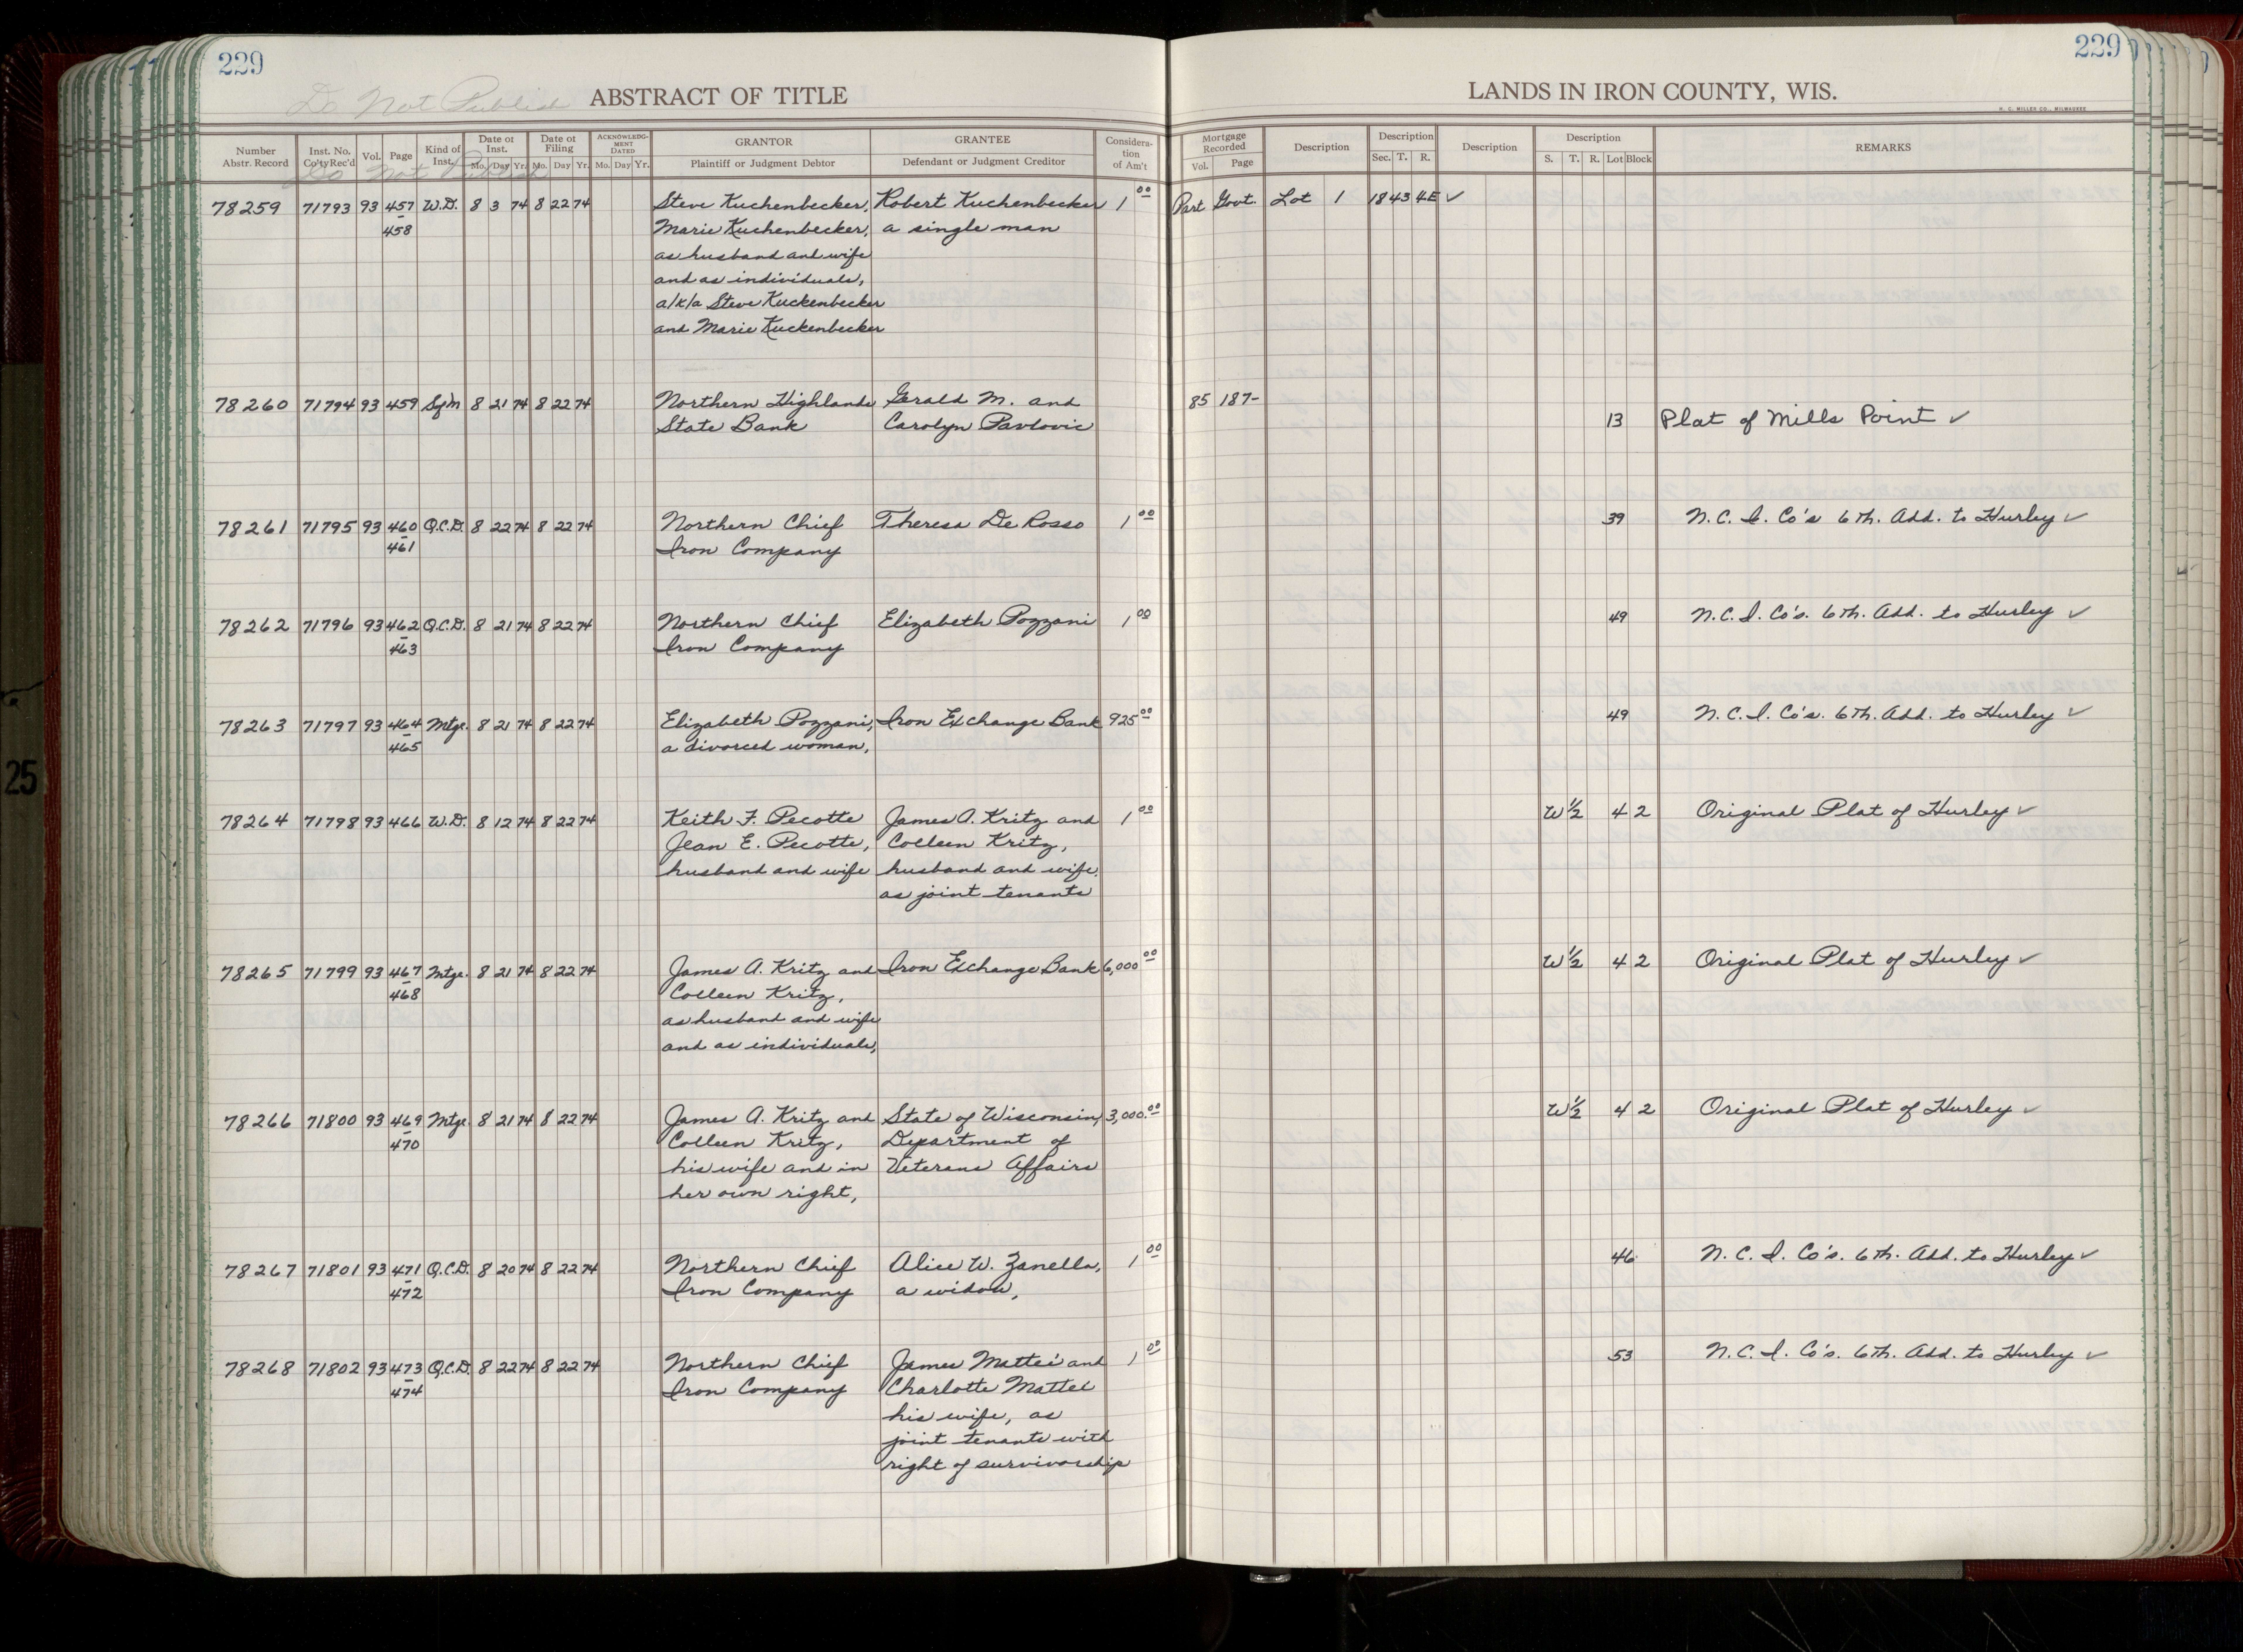 229
229
Do Not Publish
ABSTRACT OF TITLE
LANDS IN IRON COUNTY, WIS.
H. C. MILLER CO., MILWAUKEE
Number Abstr. Record | Inst. No. Co'ty Rec'd | Vol. | Page | Kind of Inst. | Date of Inst. Mo. Day Yr. | Date of Filing Mo. Day Yr. | ACKNOWLEDGMENT DATED Mo. Day Yr. | GRANTOR Plaintiff or Judgment Debtor | GRANTEE Defendant or Judgment Creditor | Consideration of Am't | Mortgage Recorded Vol. Page | Description | Description Sec. T. R. | Description | Description S. T. R. Lot Block | REMARKS
Do Not Publish
78259 71793 93 457 W.D. 8 3 74 8 22 74 Steve Kuchenbecker, Robert Kuchenbecker 1 00 Part Govt. Lot 1 18 43 4E ✓
458 Marie Kuchenbecker, a single man
as husband and wife
and as individuals,
a/k/a Steve Kuckenbecker
and Marie Kuckenbecker
78260 71794 93 459 8 21 74 8 22 74 Northern Highlands Gerald M. and 85 187-
State Bank Carolyn Pavlovic 13 Plat of Mills Point ✓
78261 71795 93 460 Q.C.D. 8 22 74 8 22 74 Northern Chief Theresa De Rosso 1 00 39 N.C.I. Co's 6th. Add. to Hurley ✓
461 Iron Company
78262 71796 93 462 Q.C.D. 8 21 74 8 22 74 Northern Chief Elizabeth Pozzani 1 00 49 N.C.I. Co's. 6th. Add. to Hurley ✓
463 Iron Company
78263 71797 93 464 Mtge. 8 21 74 8 22 74 Elizabeth Pozzani, Iron Exchange Bank 925 00 49 N.C.I. Co's. 6th. Add. to Hurley ✓
465 a divorced woman,
78264 71798 93 466 W.D. 8 12 74 8 22 74 Keith F. Pecotte James A. Kritz and 1 00 W 1/2 4 2 Original Plat of Hurley ✓
Jean E. Pecotte, Colleen Kritz,
husband and wife husband and wife,
as joint tenants
78265 71799 93 467 Mtge. 8 21 74 8 22 74 James A. Kritz and Iron Exchange Bank 6,000 00 W 1/2 4 2 Original Plat of Hurley ✓
468 Colleen Kritz,
as husband and wife
and as individuals,
78266 71800 93 469 Mtge. 8 21 74 8 22 74 James A. Kritz and State of Wisconsin, 3,000.00 W 1/2 4 2 Original Plat of Hurley ✓
470 Colleen Kritz, Department of
his wife and in Veterans Affairs
her own right,
78267 71801 93 471 Q.C.D. 8 20 74 8 22 74 Northern Chief Alice W. Zanella, 1 00 46 N.C.I. Co's. 6th. Add. to Hurley ✓
472 Iron Company a widow,
78268 71802 93 473 Q.C.D. 8 22 74 8 22 74 Northern Chief James Mattei and 1 00 53 N.C.I. Co's. 6th. Add. to Hurley ✓
474 Iron Company Charlotte Mattei
his wife, as
joint tenants with
right of survivorship
25